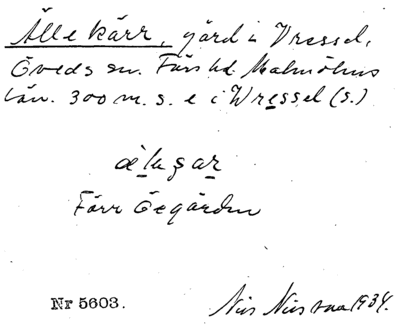 Älle kärr, gård i Vressel,
Öveds sn. Färs hd. Malmöhus
län. 300 m. s. e i Wressel (s.)
Förr Ögården
Nr 5603.
Nils Nilsson 1934.